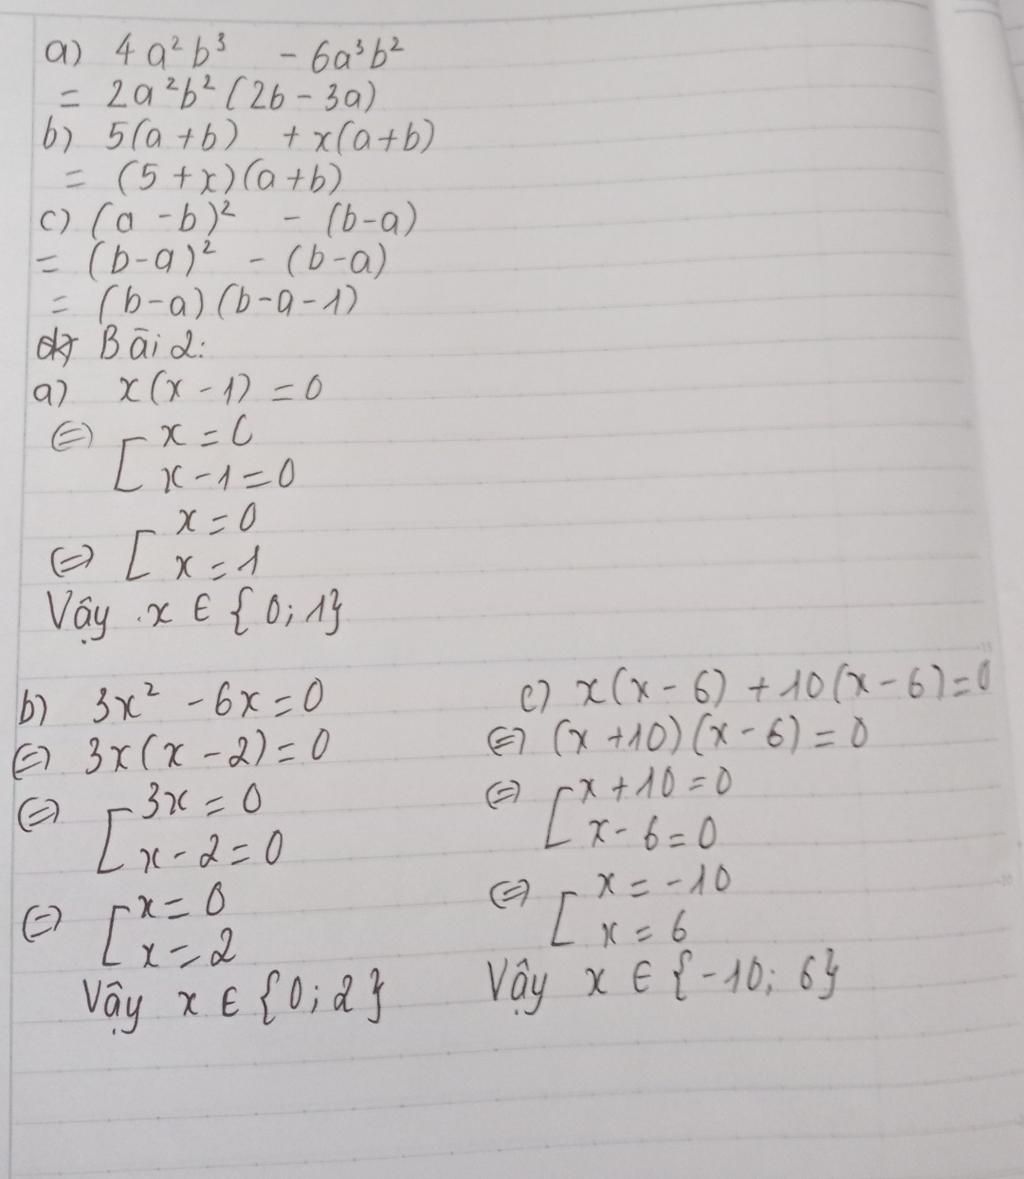 a) 4a²b³ - 6a³b²
= 2a²b²(2b - 3a)
b) 5(a+b) + x(a+b)
= (5+x)(a+b)
c) (a-b)² - (b-a)
= (b-a)² - (b-a)
= (b-a)(b-a-1)
Bài 2:
a) x(x-1) = 0
⇔ [ x = 0
x-1 = 0
⇔ [ x = 0
x = 1
Vậy x ∈ {0; 1}
b) 3x² - 6x = 0
⇔ 3x(x-2) = 0
⇔ [ 3x = 0
x-2 = 0
⇔ [ x = 0
x = 2
Vậy x ∈ {0; 2}
c) x(x-6) + 10(x-6) = 0
⇔ (x+10)(x-6) = 0
⇔ [ x+10 = 0
x-6 = 0
⇔ [ x = -10
x = 6
Vậy x ∈ {-10; 6}